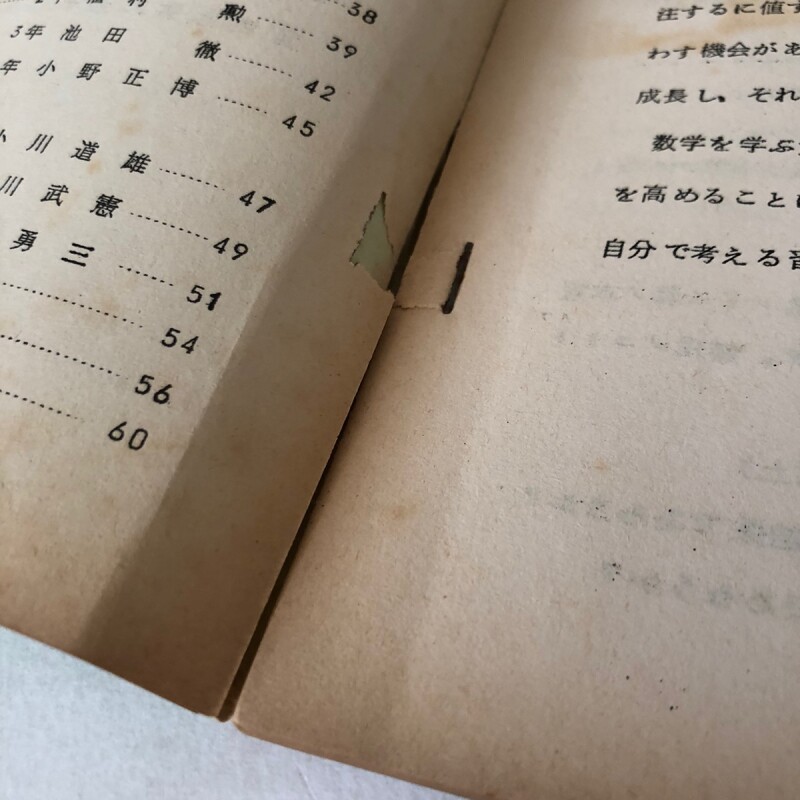 38
勲……39
3年 池田 徹……42
年 小野正博……45
小川道雄……47
川武憲……49
勇三……51
……54
……56
……60
注するに値す
わす機会があ
成長し、それ
数学を学ぶ
を高めること
自分で考える習